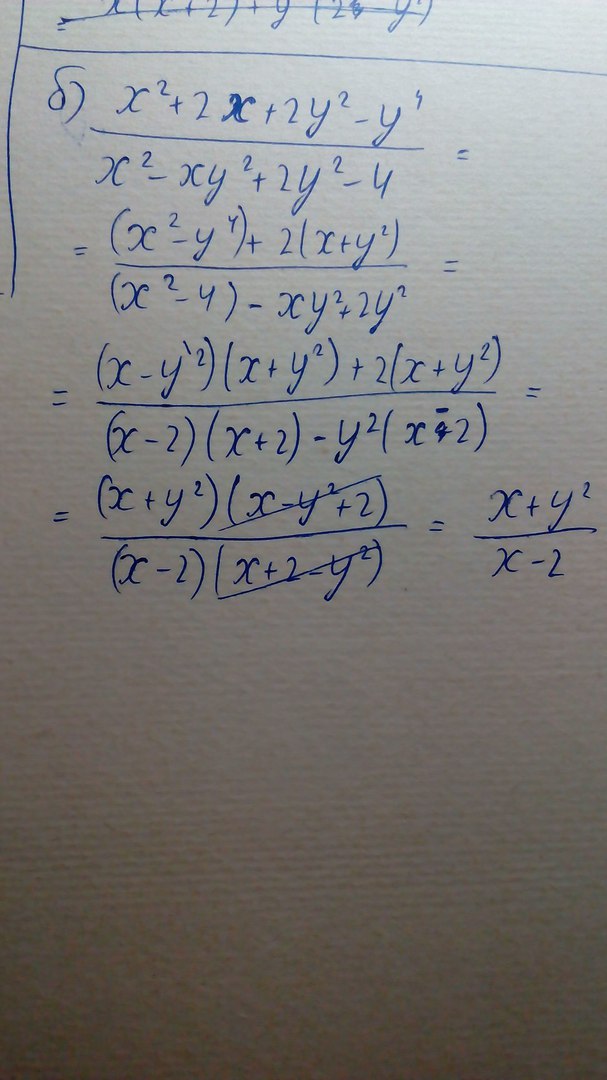 x(x+2)+y²(2-y²)
б) x²+2x+2y²-y⁴
x²-xy²+2y²-4 =
= (x²-y⁴)+2(x+y²) =
(x²-4)-xy²+2y²
= (x-y²)(x+y²)+2(x+y²) =
(x-2)(x+2)-y²(x-2)
= (x+y²)(x-y²+2) = x+y²
(x-2)(x+2-y²) x-2